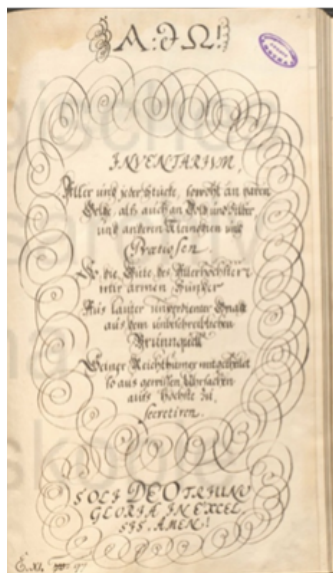 A:&Ω!
INVENTARIUM,
Aller und jeder Stücke, sowohl an baren
Gelde, als auch an Gold und Silber
und anderen Kleinodien und
Prætiosen
So die Güte des Allerhöchsten
mir armen Sünder
Aus lauter unverdienter Gnade
aus dem unbeschreiblichen
Brunnquell
Seiner Reichthümer mitgetheilet
so aus gewissen Uhrsachen
aufs höchste zu
secretiren.
SOLI DEO TRIUNO
GLORIA IN EXCEL
SIS. AMEN!
E. XI.
97